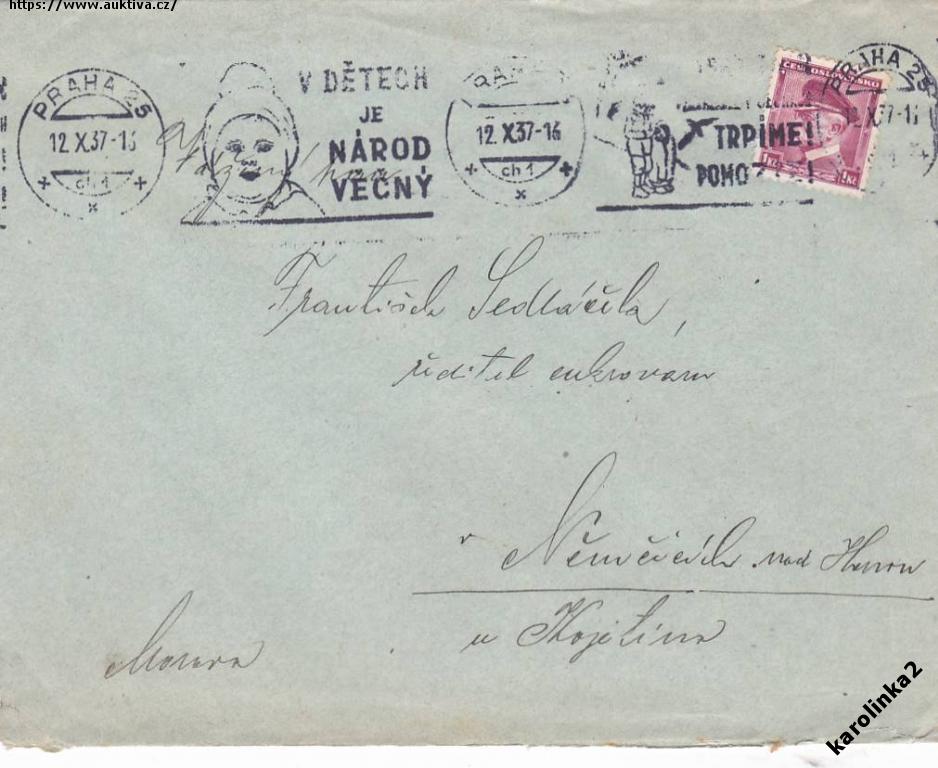 https://www.auktiva.cz/
PRAHA 25
12.X.37-16
ch 1
V DĚTECH
JE
NÁROD
VĚČNÝ
12.X.37-16
ch 1
TRPÍME!
ČESKOSLOVENSKO
1Kč 1Kč
PRAHA 25
X.37-16
František Sedláček,
ředitel cukrovaru
v Němčicích nad Hanou
u Kojetína
Morava
karolinka2